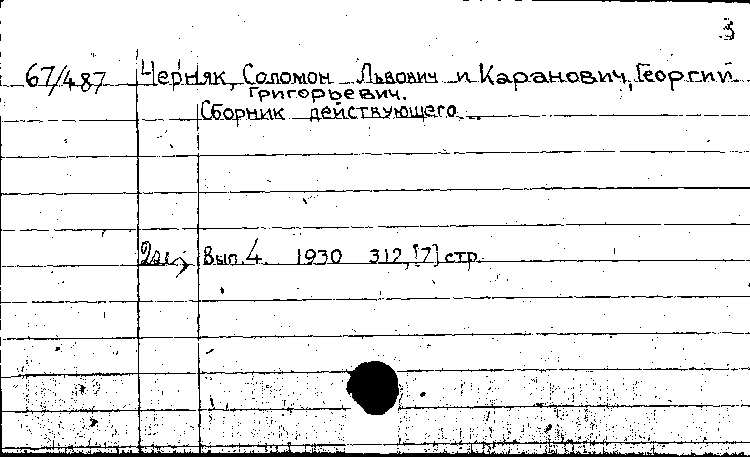 3
67/487 Черняк, Соломон Львович и Каранович, Георгий
Григорьевич.
Сборник действующего...
2 экз Вып. 4. 1930 312, [7] стр.